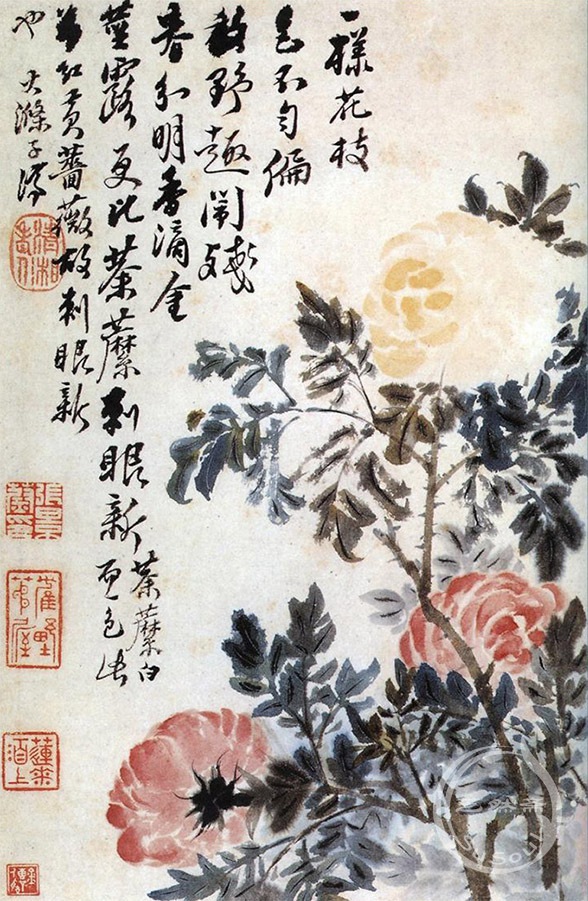 一樣花枝
色不勻偏
教野趣鬧殘
春分明香滴金
莖露更比荼蘼刺眼新荼蘼白而色
紅黃薔薇故刺眼新
也大滌子濟
清湘老人